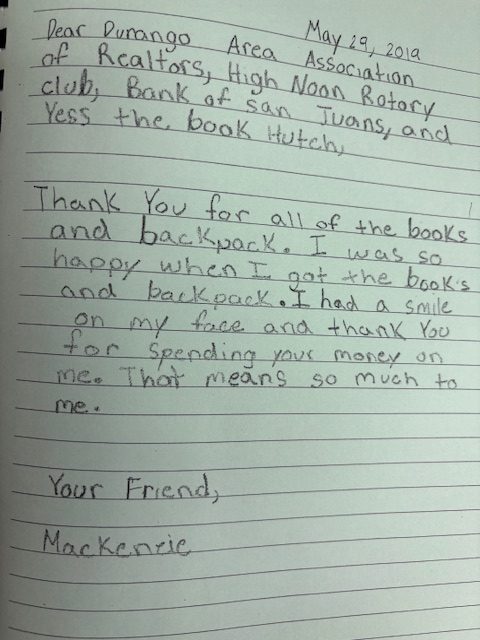 May 29, 2019
Dear Durango Area Association
of Realtors, High Noon Rotary
club, Bank of san Juans, and
Yess the book Hutch,
Thank You for all of the books
and backpack. I was so
happy when I got the book's
and backpack. I had a smile
on my face and thank You
for spending your money on
me. That means so much to
me.
Your Friend,
Mackenzie